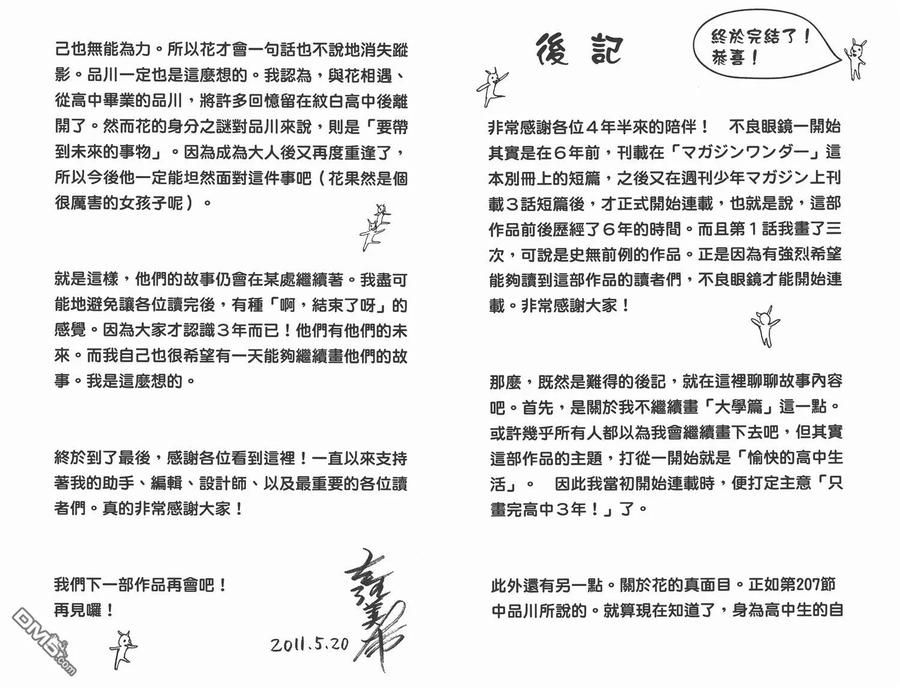 後記
終於完結了！
恭喜！
非常感謝各位４年半來的陪伴！　不良眼鏡一開始
其實是在６年前，刊載在「マガジンワンダー」這
本別冊上的短篇，之後又在週刊少年マガジン上刊
載３話短篇後，才正式開始連載，也就是說，這部
作品前後歷經了６年的時間。而且第１話我畫了三
次，可說是史無前例的作品。正是因為有強烈希望
能夠讀到這部作品的讀者們，不良眼鏡才能開始連
載。非常感謝大家！
那麼，既然是難得的後記，就在這裡聊聊故事內容
吧。首先，是關於我不繼續畫「大學篇」這一點。
或許幾乎所有人都以為我會繼續畫下去吧，但其實
這部作品的主題，打從一開始就是「愉快的高中生
活」。　因此我當初開始連載時，便打定主意「只
畫完高中３年！」了。
此外還有另一點。關於花的真面目。正如第207節
中品川所說的。就算現在知道了，身為高中生的自
己也無能為力。所以花才會一句話也不說地消失蹤
影。品川一定也是這麼想的。我認為，與花相遇、
從高中畢業的品川，將許多回憶留在紋白高中後離
開了。然而花的身分之謎對品川來說，則是「要帶
到未來的事物」。因為成為大人後又再度重逢了，
所以今後他一定能坦然面對這件事吧（花果然是個
很厲害的女孩子呢）。
就是這樣，他們的故事仍會在某處繼續著。我盡可
能地避免讓各位讀完後，有種「啊，結束了呀」的
感覺。因為大家才認識３年而已！他們有他們的未
來。而我自己也很希望有一天能夠繼續畫他們的故
事。我是這麼想的。
終於到了最後，感謝各位看到這裡！一直以來支持
著我的助手、編輯、設計師、以及最重要的各位讀
者們。真的非常感謝大家！
我們下一部作品再會吧！
再見囉！
2011.5.20
DM5.com